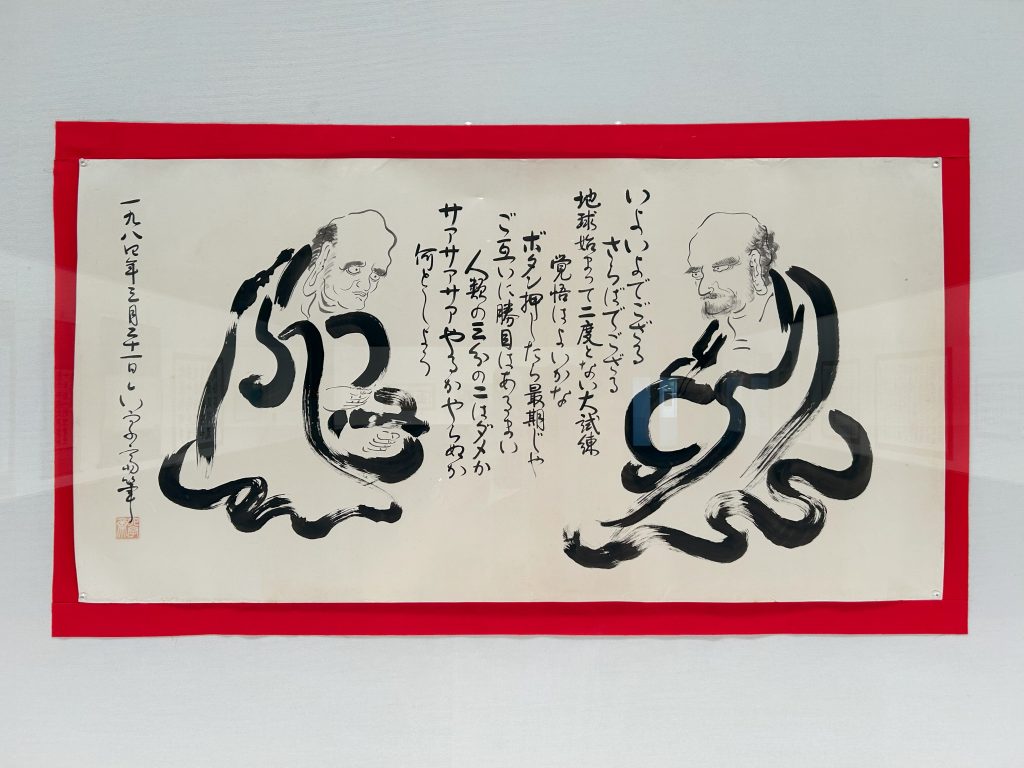 いよいよでござる
さらばでござる
地球始まって二度とない大試練
覚悟はよいかな
ボタン押したら最期じゃ
ご互いに勝目はあるまい
人類の三分の二はダメか
サアサアサアやるかやらぬか
何としよう
一九八四年三月 筆